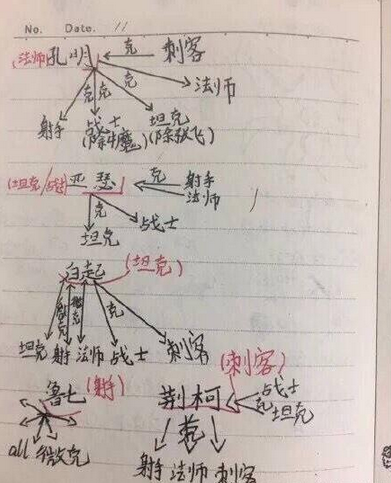 No. Date. 11
(法师)孔明 克 刺客
克 克 克 法师
射手 战士 坦克
(除钟魔)(除张飞)
(坦克/战士)亚瑟 克 射手
法师
克
坦克 战士
白起 (坦克)
微克 微克 克
坦克 射 法师 战士 刺客
鲁七 (射) (刺客)
荆柯 克 战士
坦克
克
all 微克
射手 法师 刺客